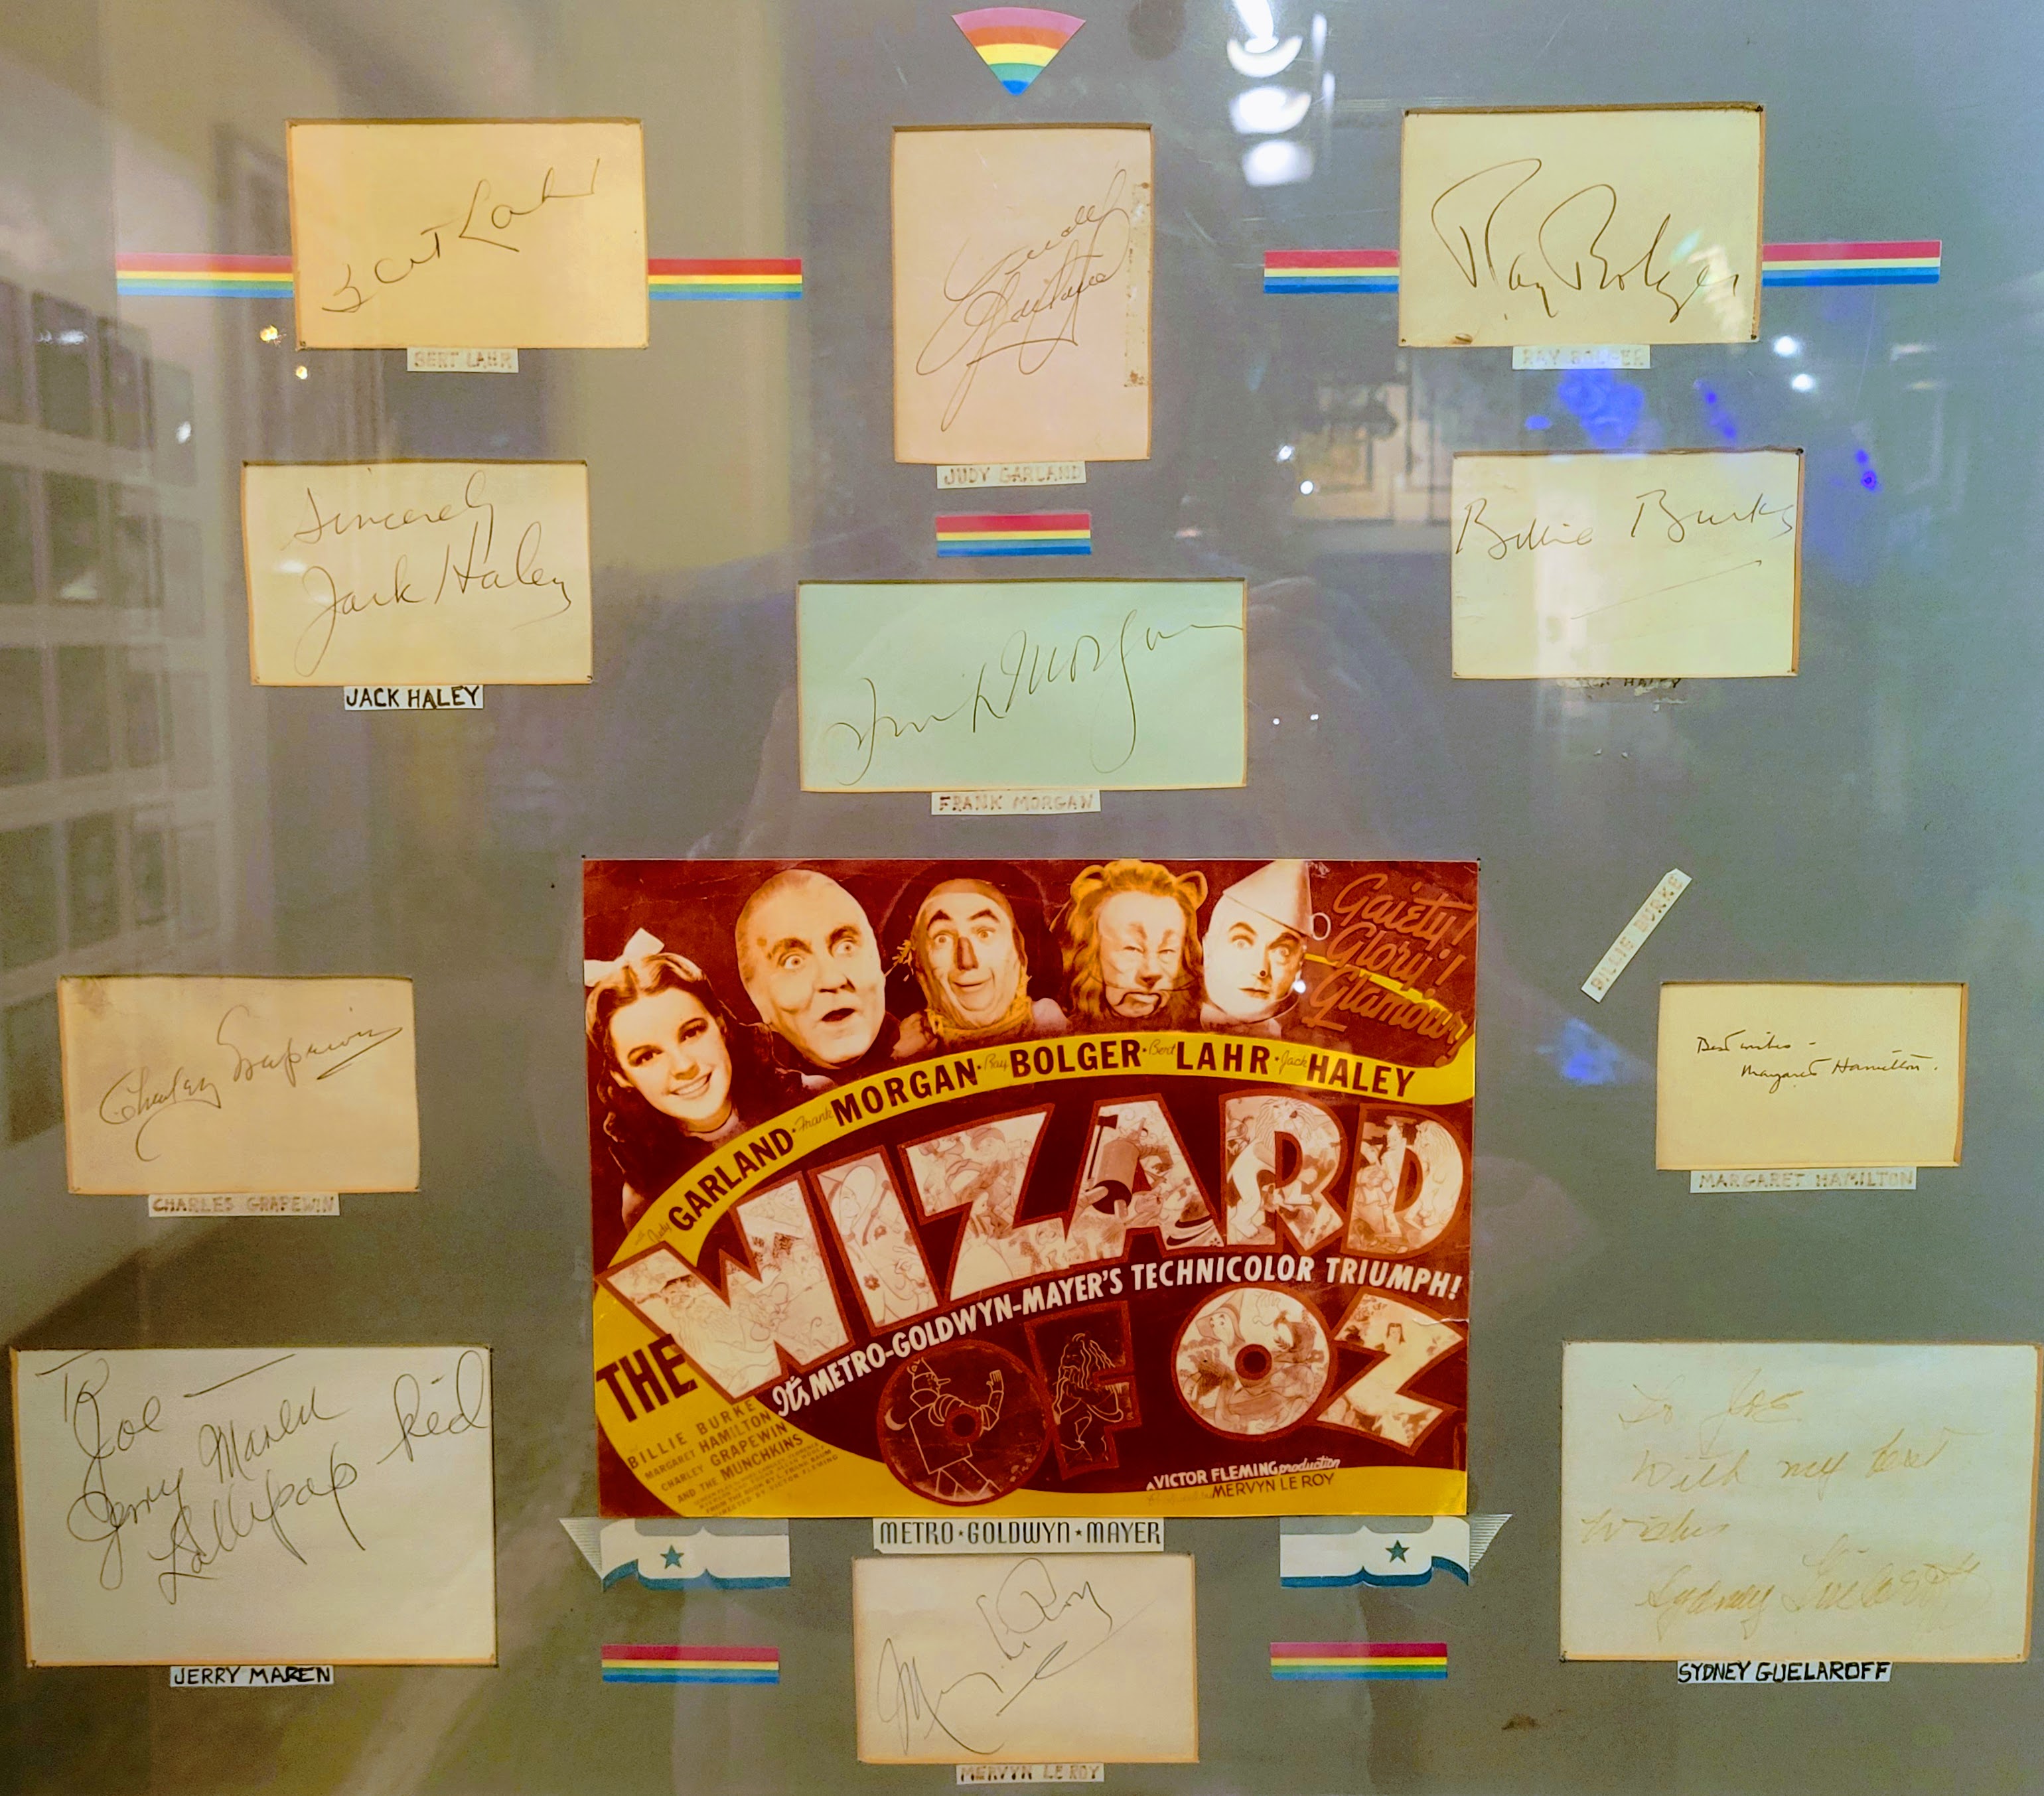 Bert Lahr
BERT LAHR
Judy
Garland
JUDY GARLAND
Ray Bolger
RAY BOLGER
Sincerely
Jack Haley
JACK HALEY
Billie Burke
HALEY
Frank Morgan
FRANK MORGAN
BILLIE BURKE
Charley Grapewin
CHARLES GRAPEWIN
Best wishes -
Margaret Hamilton.
MARGARET HAMILTON
Gaiety!
Glory!
Glamour!
with Judy GARLAND · Frank MORGAN · Ray BOLGER · Bert LAHR · Jack HALEY
THE WIZARD
It's METRO-GOLDWYN-MAYER'S TECHNICOLOR TRIUMPH!
OF OZ
BILLIE BURKE
MARGARET HAMILTON
CHARLEY GRAPEWIN
AND THE MUNCHKINS
A VICTOR FLEMING production
MERVYN LE ROY
METRO ★ GOLDWYN ★ MAYER
To
Joe —
Jerry Maren
Lollipop kid
JERRY MAREN
Mervyn LeRoy
MERVYN LE ROY
To Joe
With my best
wishes
Sydney Guilaroff
SYDNEY GUELAROFF